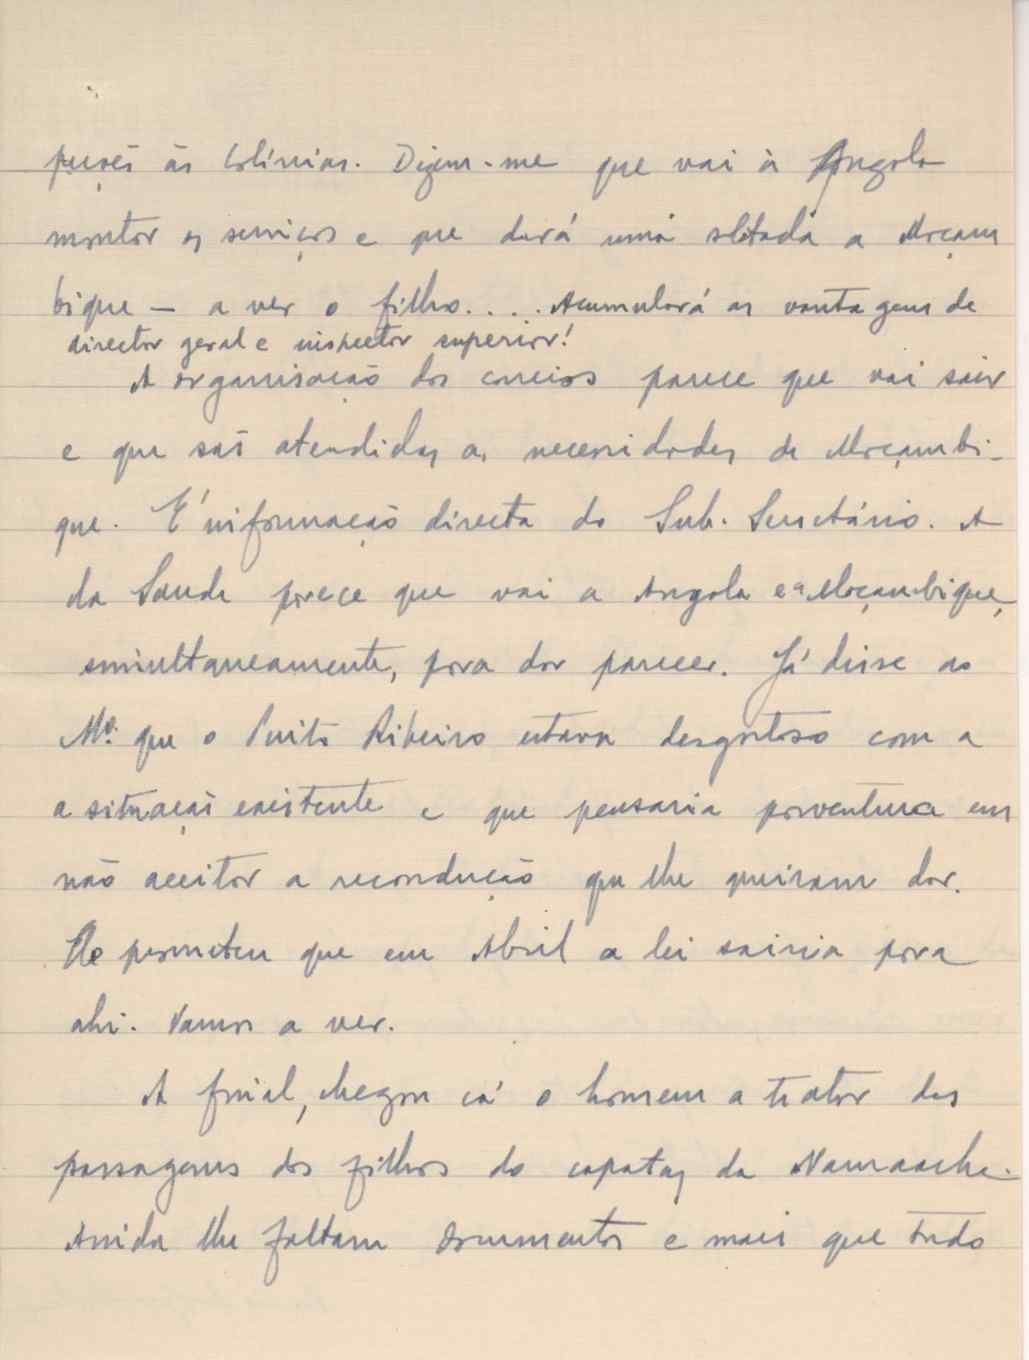 às Colónias. Dizem-me que vai à Angola
montar os serviços e que dará uma saltada a Moçam
bique — a ver o filho.... Acumulará as vantagens de
director geral e inspector superior!
A organisação dos correios parece que vai sair
e que são atendidas as necessidades de Moçambi-
que. É informação directa do Sub-Secretário. A
da Saude parece que vai a Angola e a Moçambique,
simultaneamente, para dar parecer. Já disse ao
Mº. que o Pinto Ribeiro estava desgostoso com a
a situação existente e que pensaria porventura em
não aceitar a recondução que lhe queiram dar.
prometeu que em Abril a lei sairia para
ahi. Vamos a ver.
A final, chegou cá o homem a tratar das
passagens dos filhos do capataz da Namaacha.
Ainda lhe faltam documentos e mais que tudo